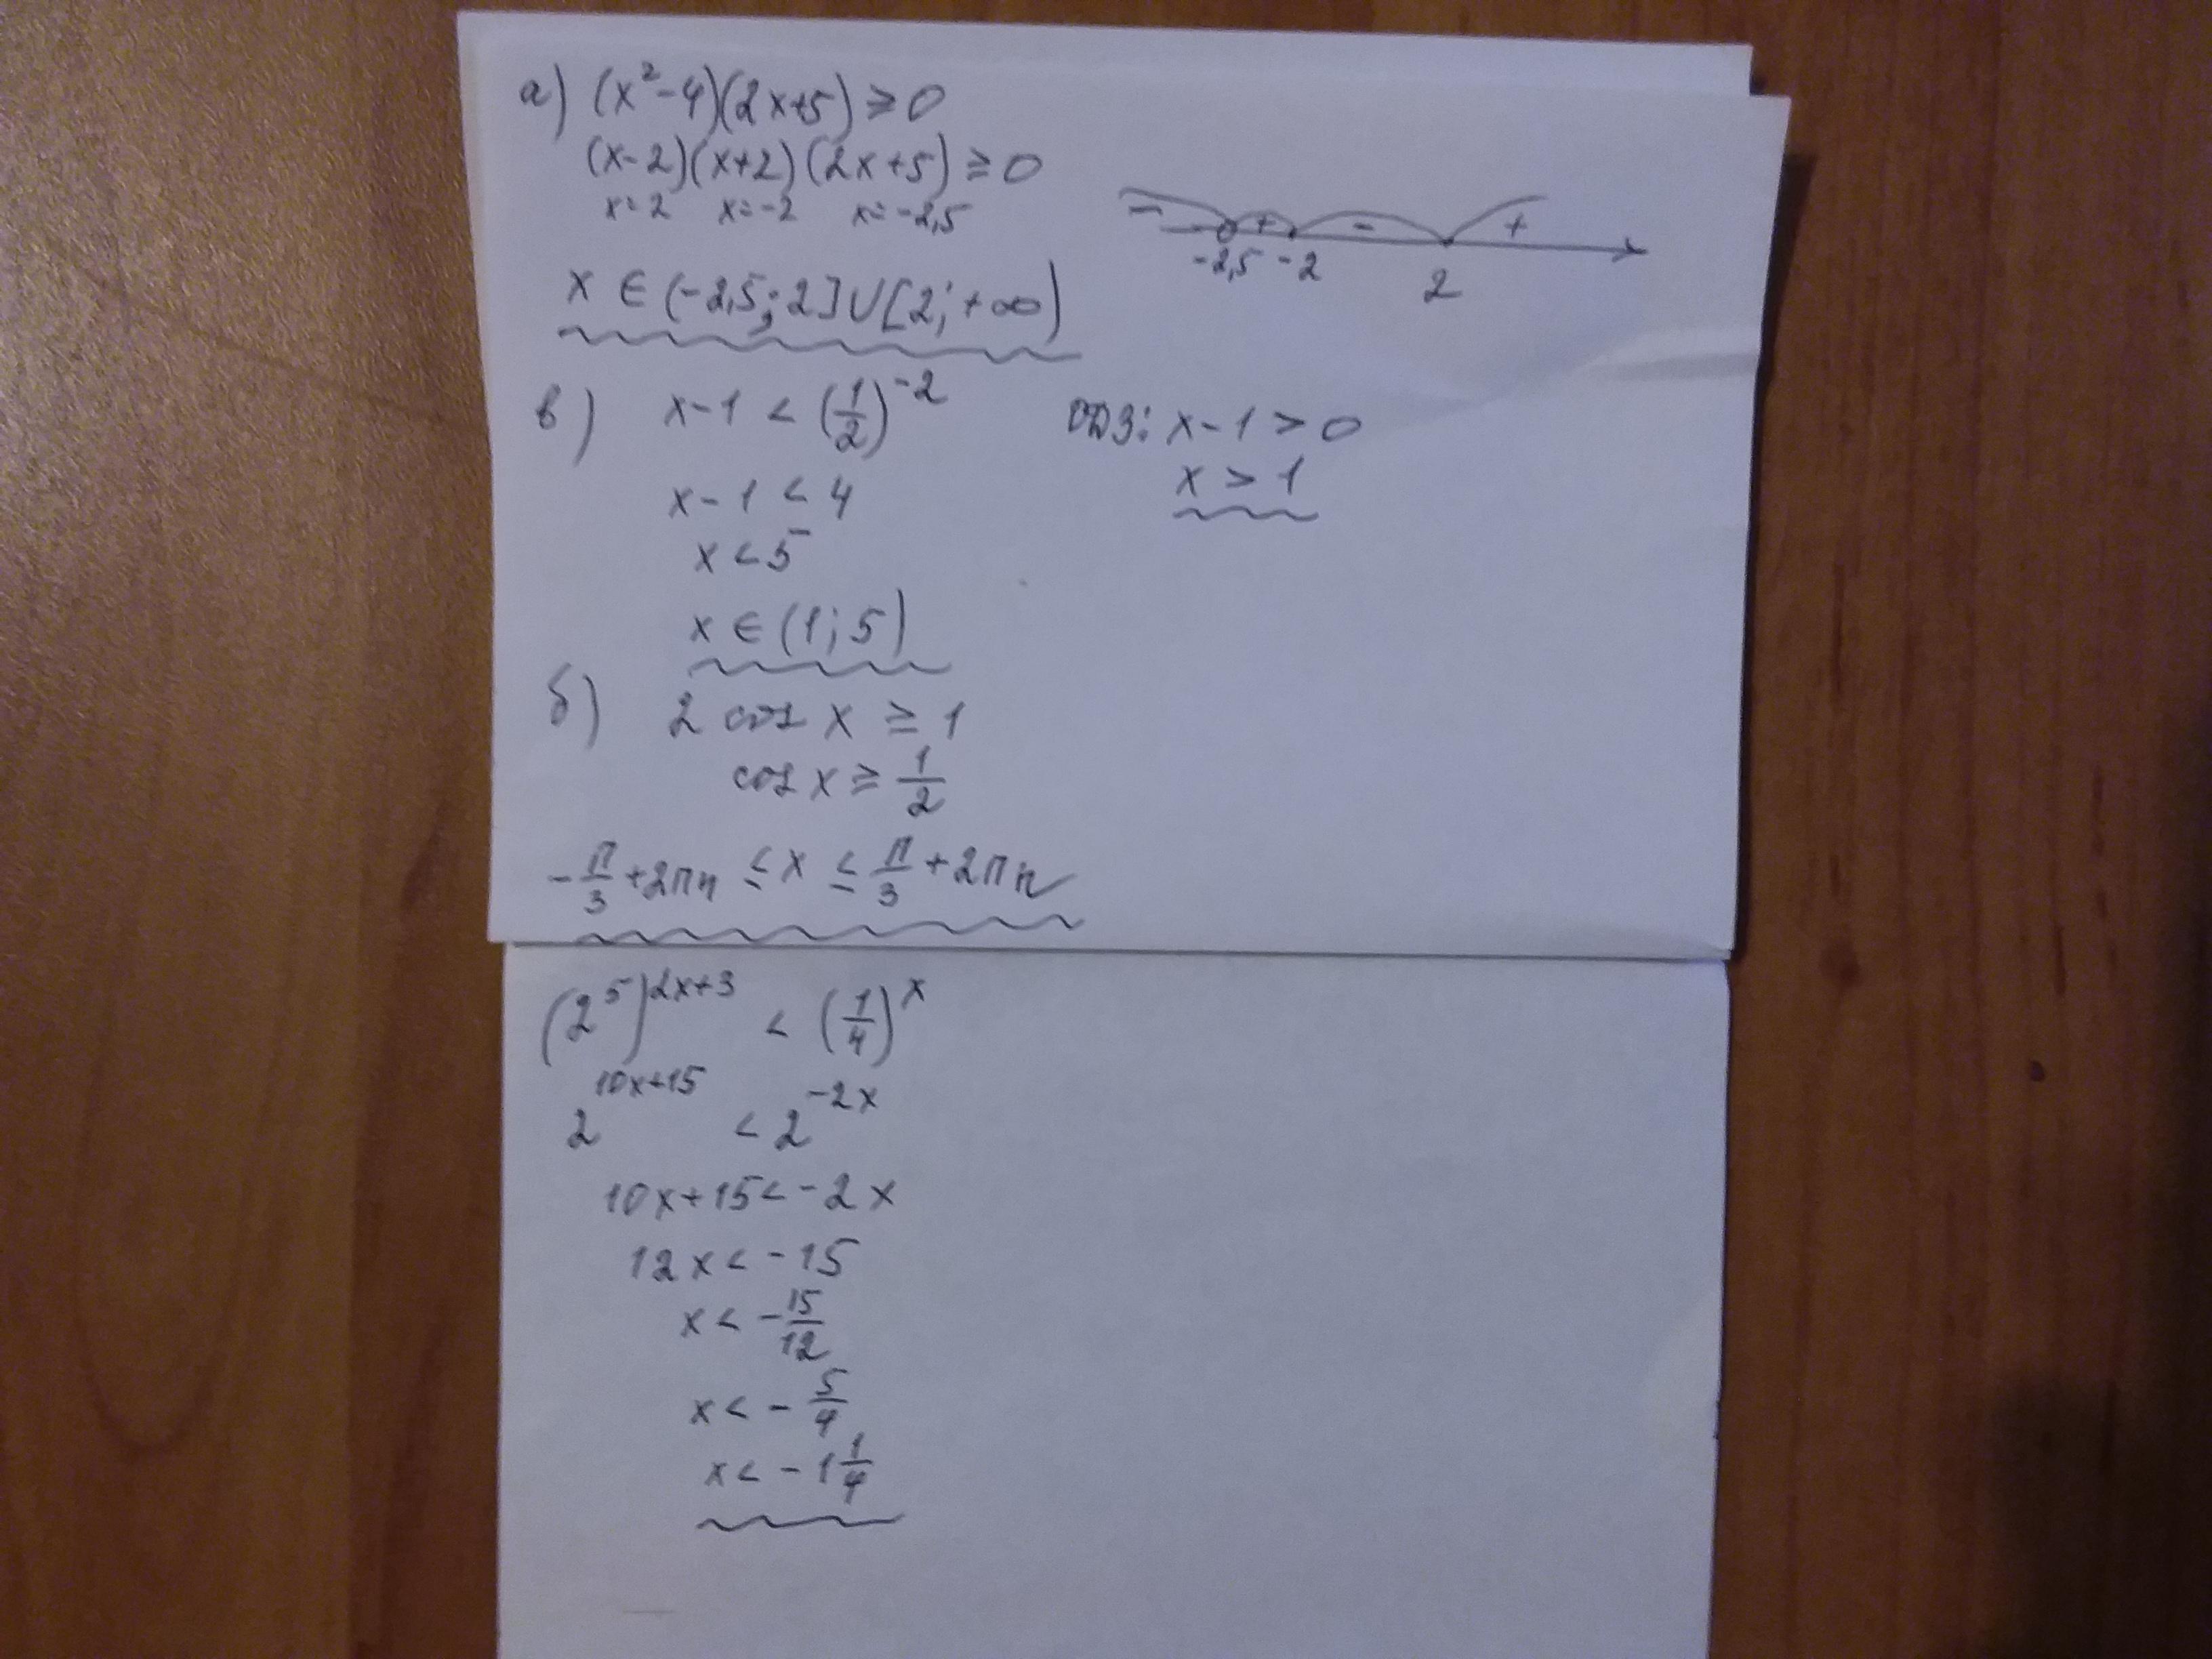 а) (x²-4)(2x+5) ≥ 0
(x-2)(x+2)(2x+5) ≥ 0
x=2 x=-2 x=-2,5
- + - +
-2,5 -2 2
x ∈ (-2,5;2]∪[2;+∞)
в) x-1 < (1/2)⁻² ОДЗ: x-1 > 0
x-1 < 4 x > 1
x < 5
x ∈ (1;5)
б) 2 cos x ≥ 1
cos x ≥ 1/2
-π/3 + 2πn ≤ x ≤ π/3 + 2πn
(2⁵)²ˣ⁺³ < (1/4)ˣ
2¹⁰ˣ⁺¹⁵ < 2⁻²ˣ
10x+15 < -2x
12x < -15
x < -15/12
x < -5/4
x < -1 1/4